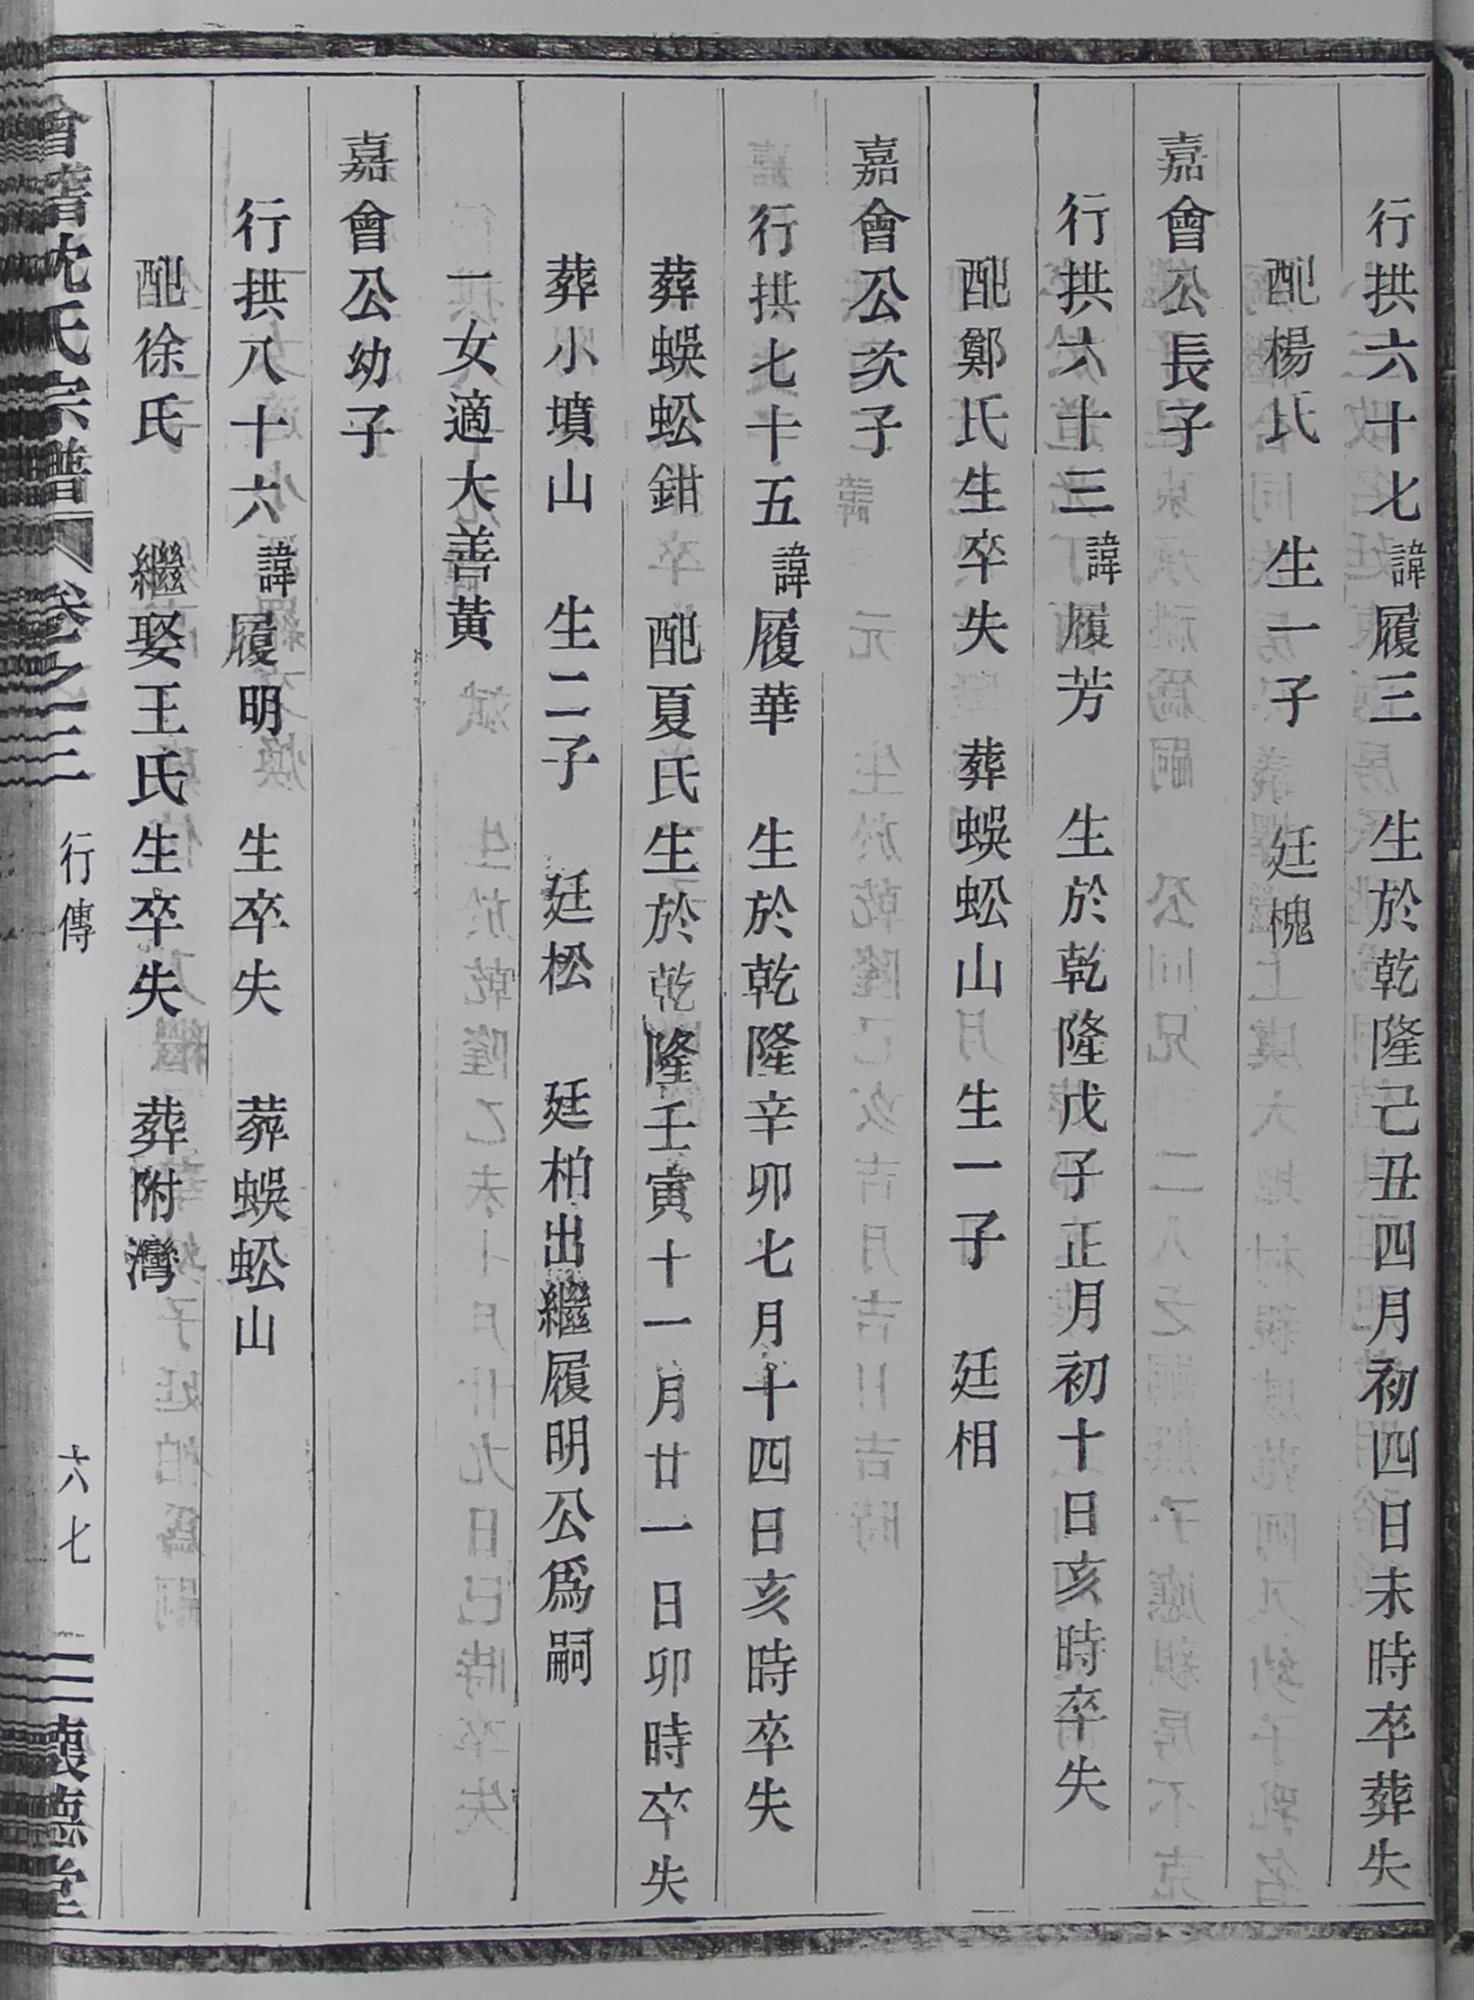 行拱六十七諱履三　生於乾隆己丑四月初四日未時卒葬失
配楊氏　生一子　廷槐
嘉會公長子
行拱六十三諱履芳　生於乾隆戊子正月初十日亥時卒失
配鄭氏生卒失　葬蜈蚣山　生一子　廷相
嘉會公次子
行拱七十五諱履華　生於乾隆辛卯七月十四日亥時卒失
葬蜈蚣鉗　配夏氏生於乾隆壬寅十一月廿一日卯時卒失
葬小墳山　生二子　廷松　廷柏出繼履明公為嗣
一女適大善黃
嘉會公幼子
行拱八十六諱履明　生卒失　葬蜈蚣山
配徐氏　繼娶王氏生卒失　葬附灣
會稽沈氏宗譜　卷之三　行傳　六七　懷德堂